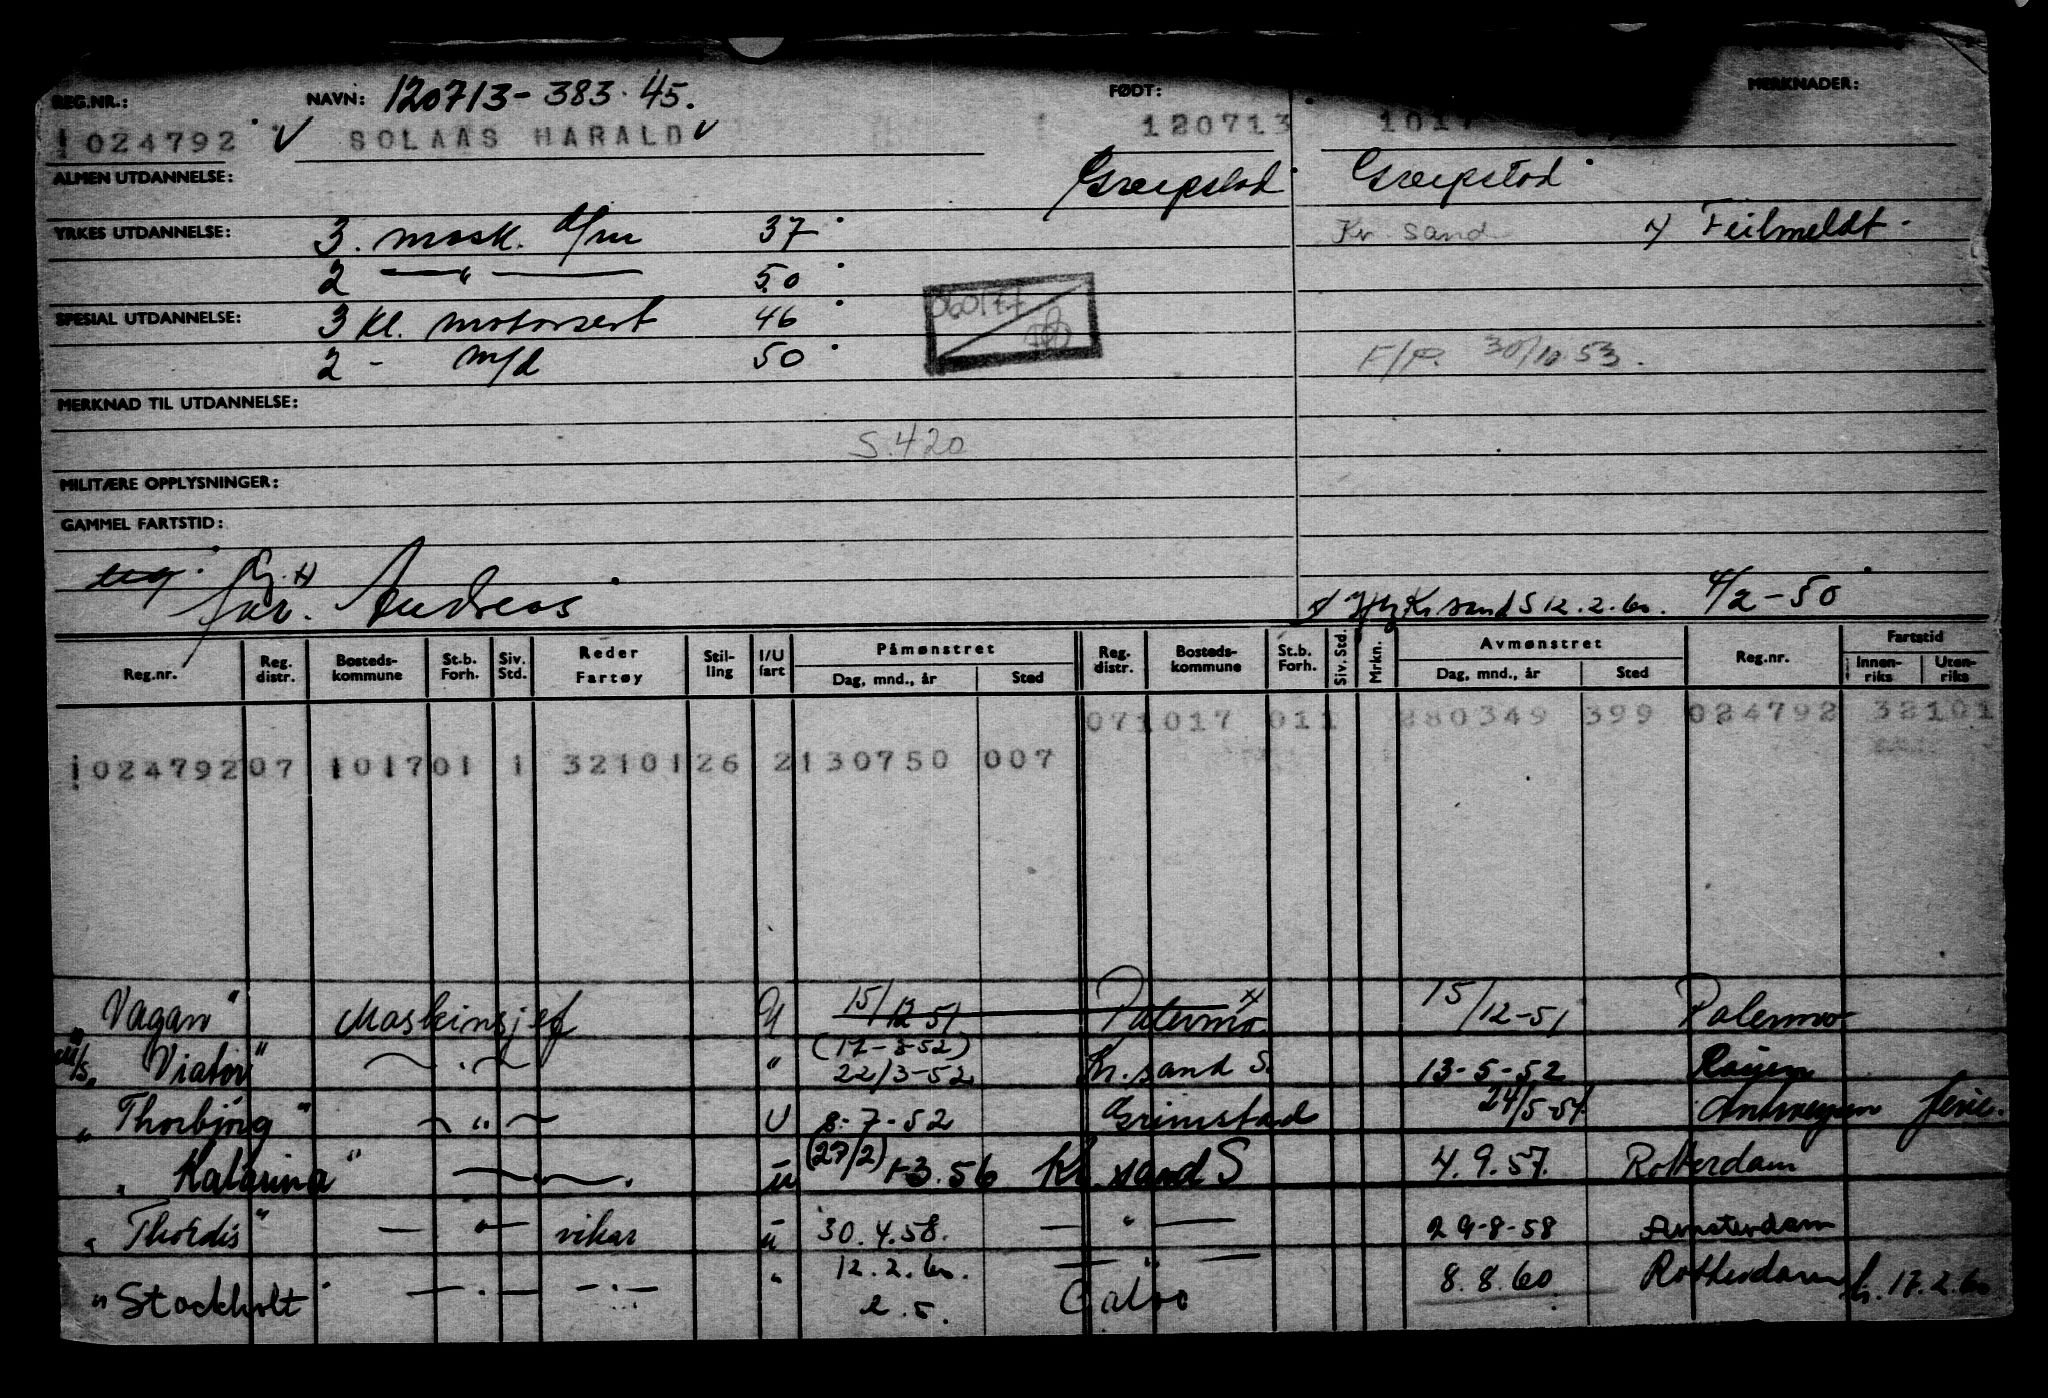 REG.NR.: NAVN: 120713-383.45. FØDT: MERKNADER:
024792 V SOLAAS HARALD V 120713 1017
ALMEN UTDANNELSE: Greipstad Greipstad
YRKES UTDANNELSE: 3. mask. d/m 37 Kr. sand Feilmeldt.
2 — " — 50
SPESIAL UTDANNELSE: 3 kl. motorsert 46 060177
2 - m/d 50 F/P. 30/10 53.
MERKNAD TIL UTDANNELSE:
S.420
MILITÆRE OPPLYSNINGER:
GAMMEL FARTSTID:
ug. Gj.
far. Andreas Kr sand S 12.2.60. 4/2-50
Reg.nr. Reg. distr. Bosteds-kommune St.b. Forh. Siv. Std. Reder Fartøy Stil-ling I/U fart Påmønstret Dag, mnd., år Sted Reg. distr. Bosteds-kommune St.b. Forh. Siv. Std. Mrkn. Avmønstret Dag, mnd., år Sted Reg.nr. Fartstid Innen-riks Uten-riks
071017 011 280349 399 024792 32101
02479207 101701 1 3210126 2130750 007
" Vagan " Maskinsjef U 15/12 51 Palermo x 15/12-51 Palermo
m/s " Viator " — " — " (17-3-52) 22/3-52 Kr. sand S. 13-5-52 Rouen
" Thorbjörg " — " — U 8-7-52 Grimstad 24/5-54 Antwerpen ferie.
" Katarina " — " — u (27/2) 1-3.56 Kr. sand S 4.9.57. Rotterdam
" Thordis " — " — vikar u 30.4.58. — " — 29-8-58 Amsterdam
" Stockholt " — " — — " — " 12.2.60. — " — 8.8.60. Rotterdam 17.2.60
2.5.